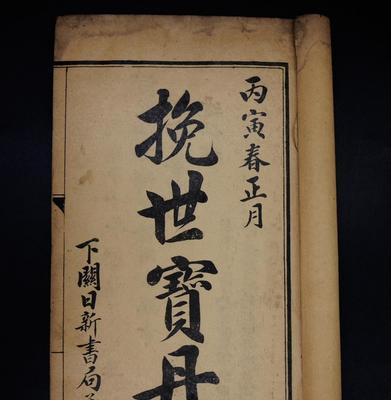 丙寅春正月
挽世寶丹
下關日新書局